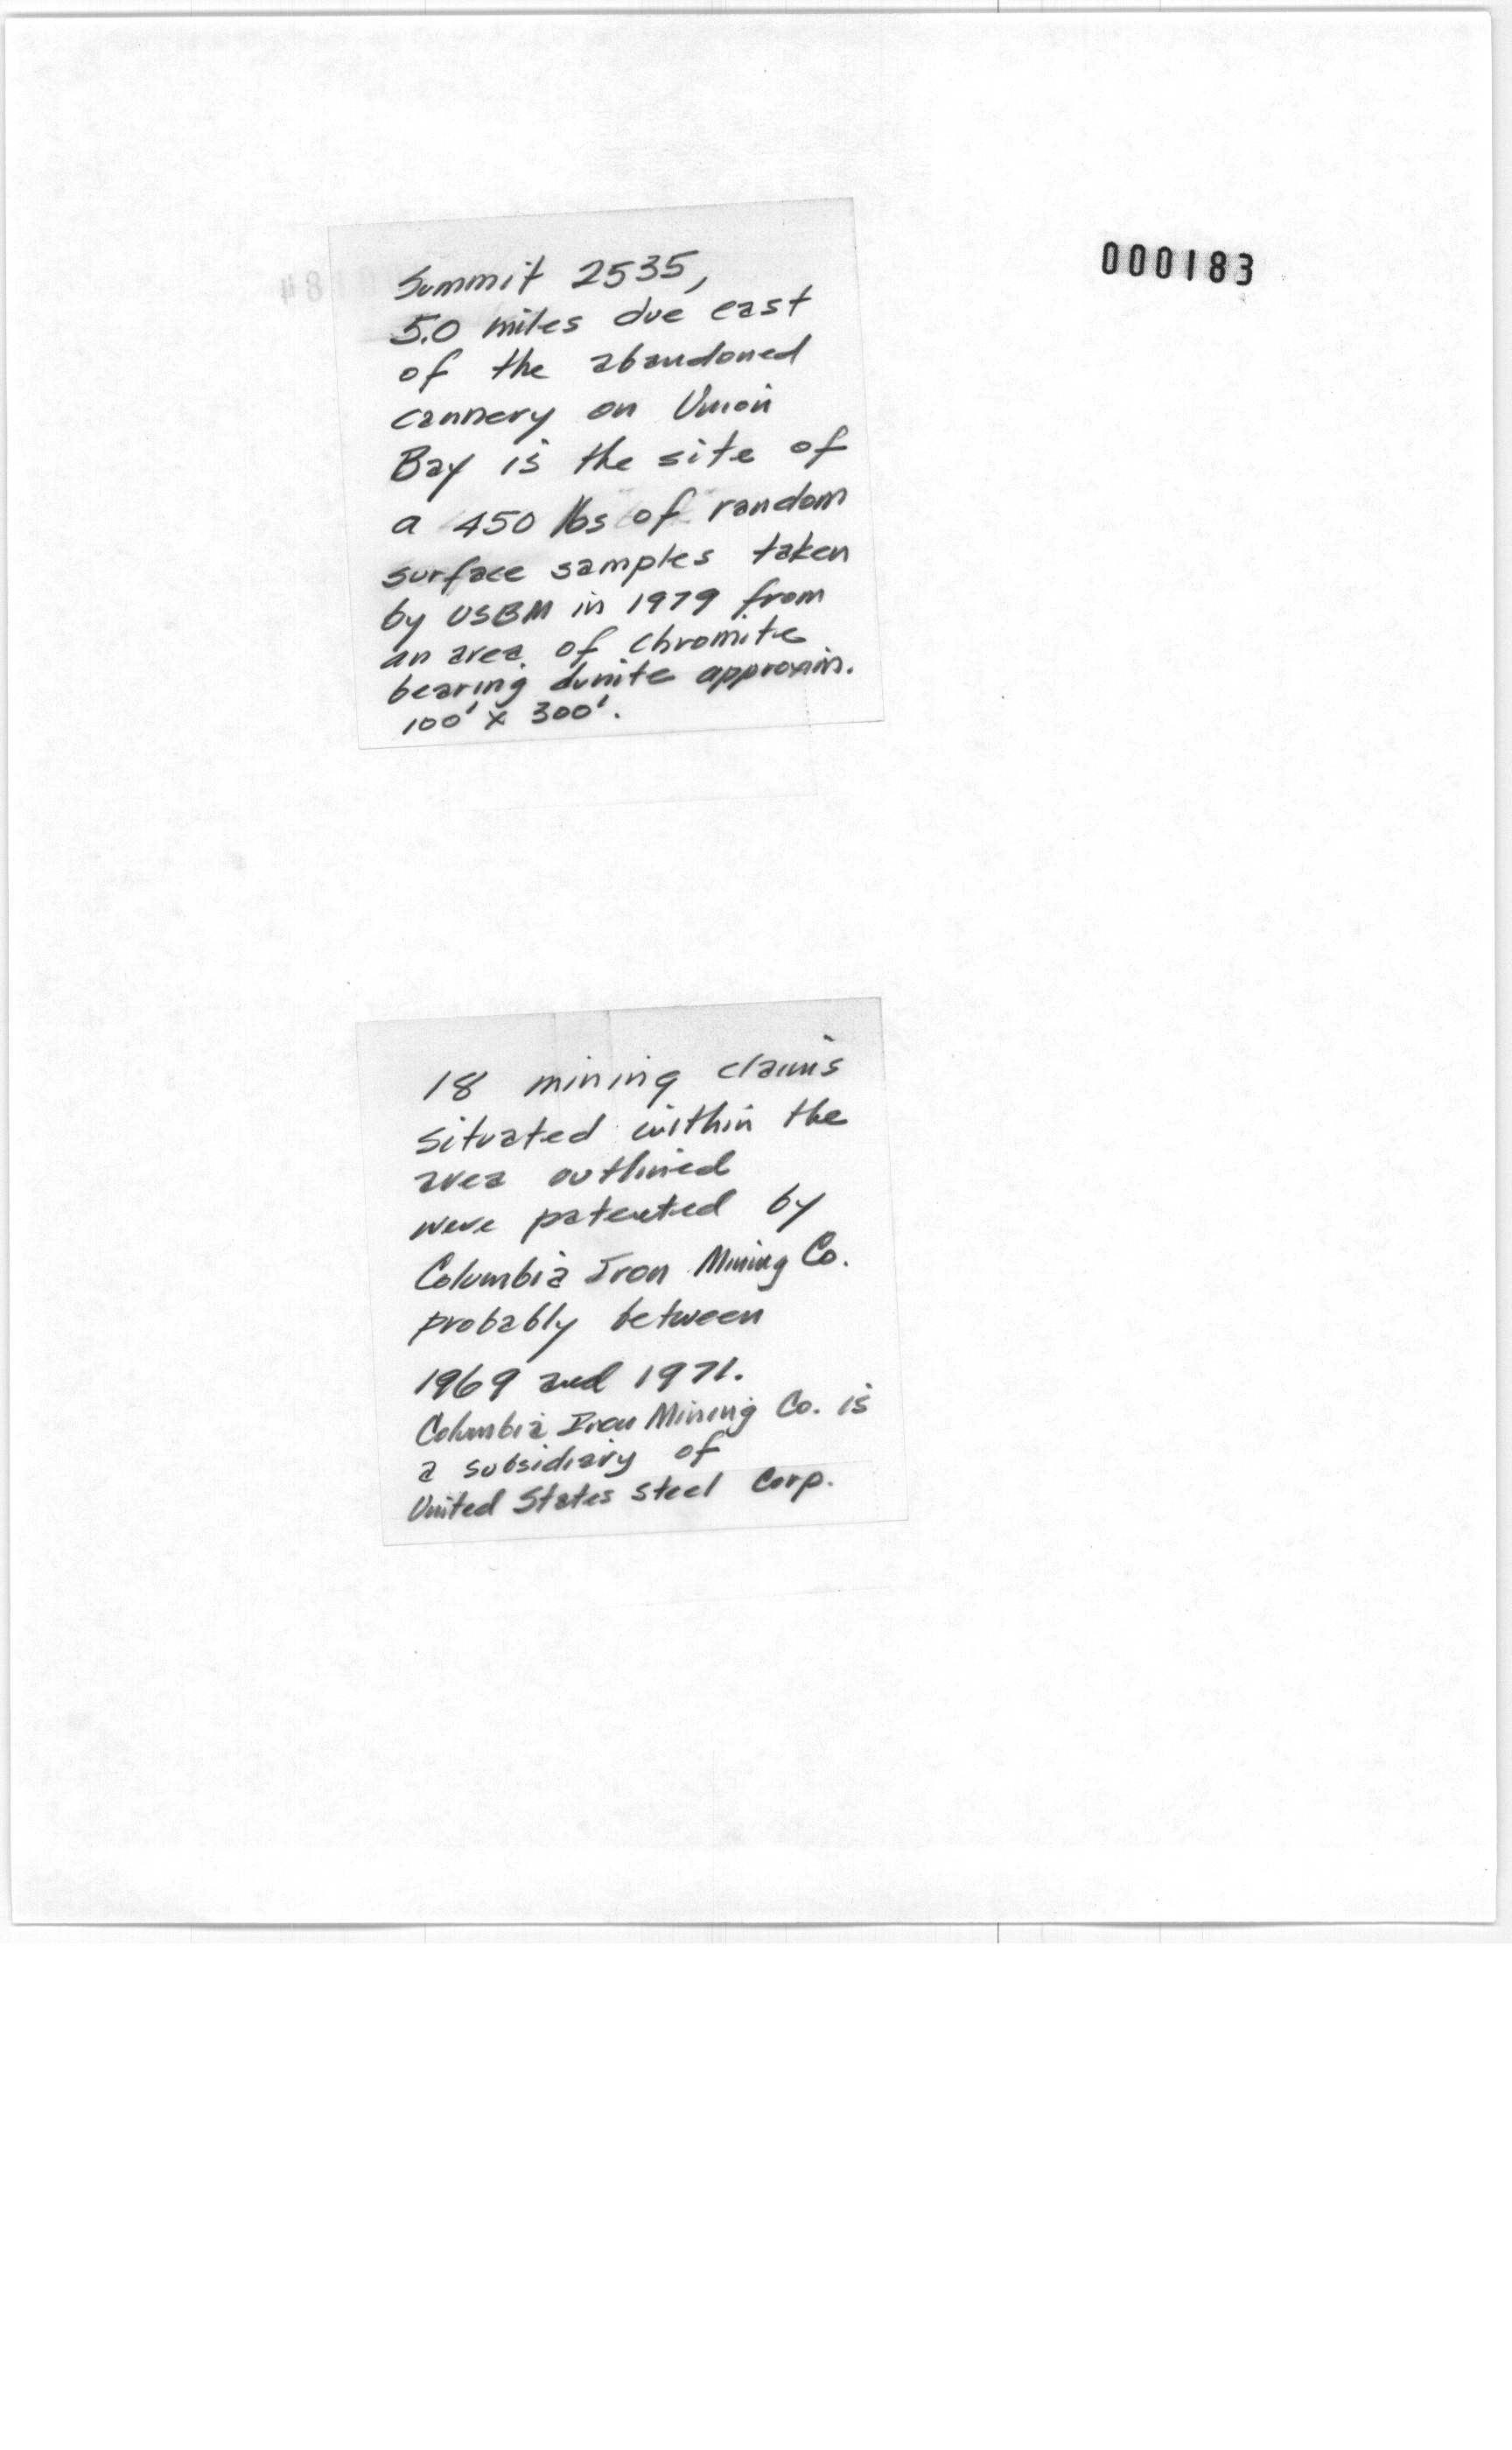 000183
Summit 2535,
5.0 miles due east
of the abandoned
cannery on Union
Bay is the site of
a 450 lbs of random
surface samples taken
by USBM in 1979 from
an area of chromite
bearing dunite approxim.
100' x 300'.
18 mining claims
situated within the
area outlined
were patented by
Columbia Iron Mining Co.
probably between
1969 and 1971.
Columbia Iron Mining Co. is
a subsidiary of
United States Steel Corp.